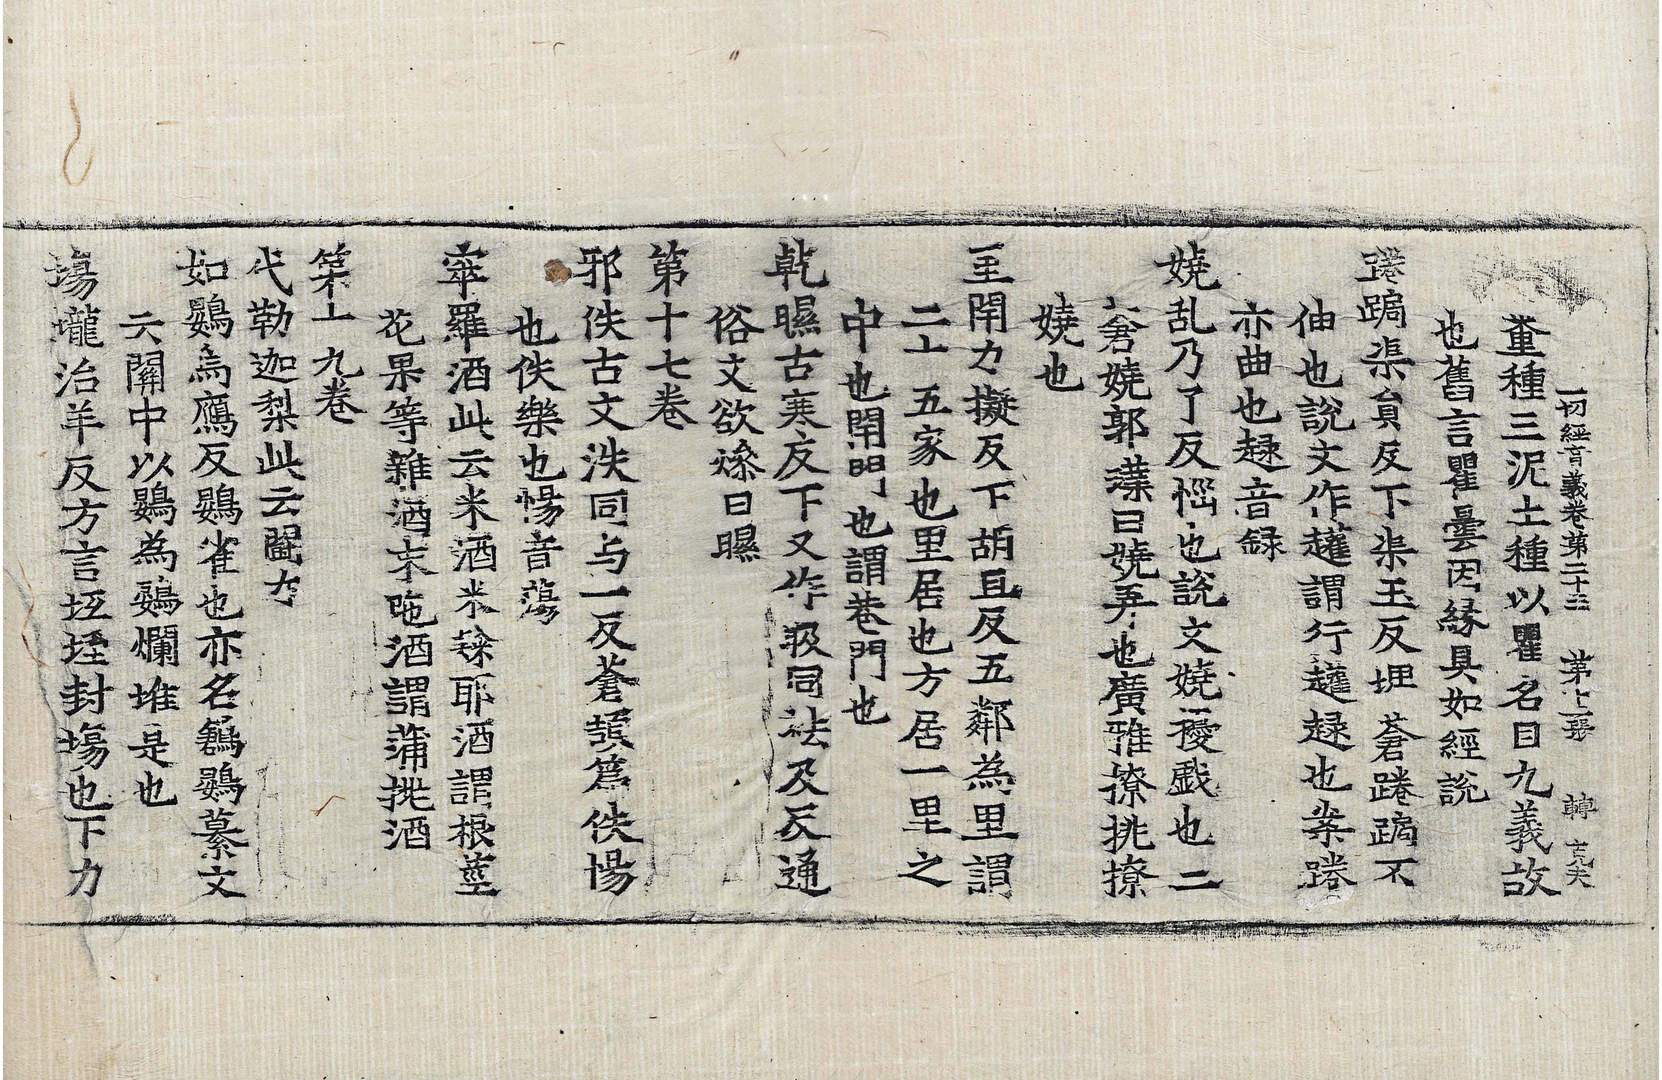 一切經音義卷第二十三 第七張 轉
糞種三泥土種以瞿名目九義故
也舊言瞿曇因緣具如經說
踡跼渠負反下渠玉反埤蒼踡跼不
伸也說文作趯謂行趯趢也案踡
亦曲也趢音録
嬈乱乃了反惱也說文嬈擾戱也三
蒼嬈郭璞曰嬈弄也廣雅撩挑撩
嬈也
里閈力擬反下胡旦反五鄰為里謂
二十五家也里居也方居一里之
中也閈門也謂巷門也
乾㬠古寒反下又作 同祛及反通
俗文欲燥曰㬠
第十七卷
邪佚古文泆同与一反蒼頡篇佚愓
也佚樂也愓音蕩
窣羅酒此云米酒米 耶酒謂根莖
花果等雜酒末陁酒謂蒲桃酒
第十九卷
代勒迦梨此云
如鷃烏鴈反鷃雀也亦名鶕鷃纂文
云關中以鷃為鷃爛堆是也
塲壠治羊反方言坻 封塲也下力